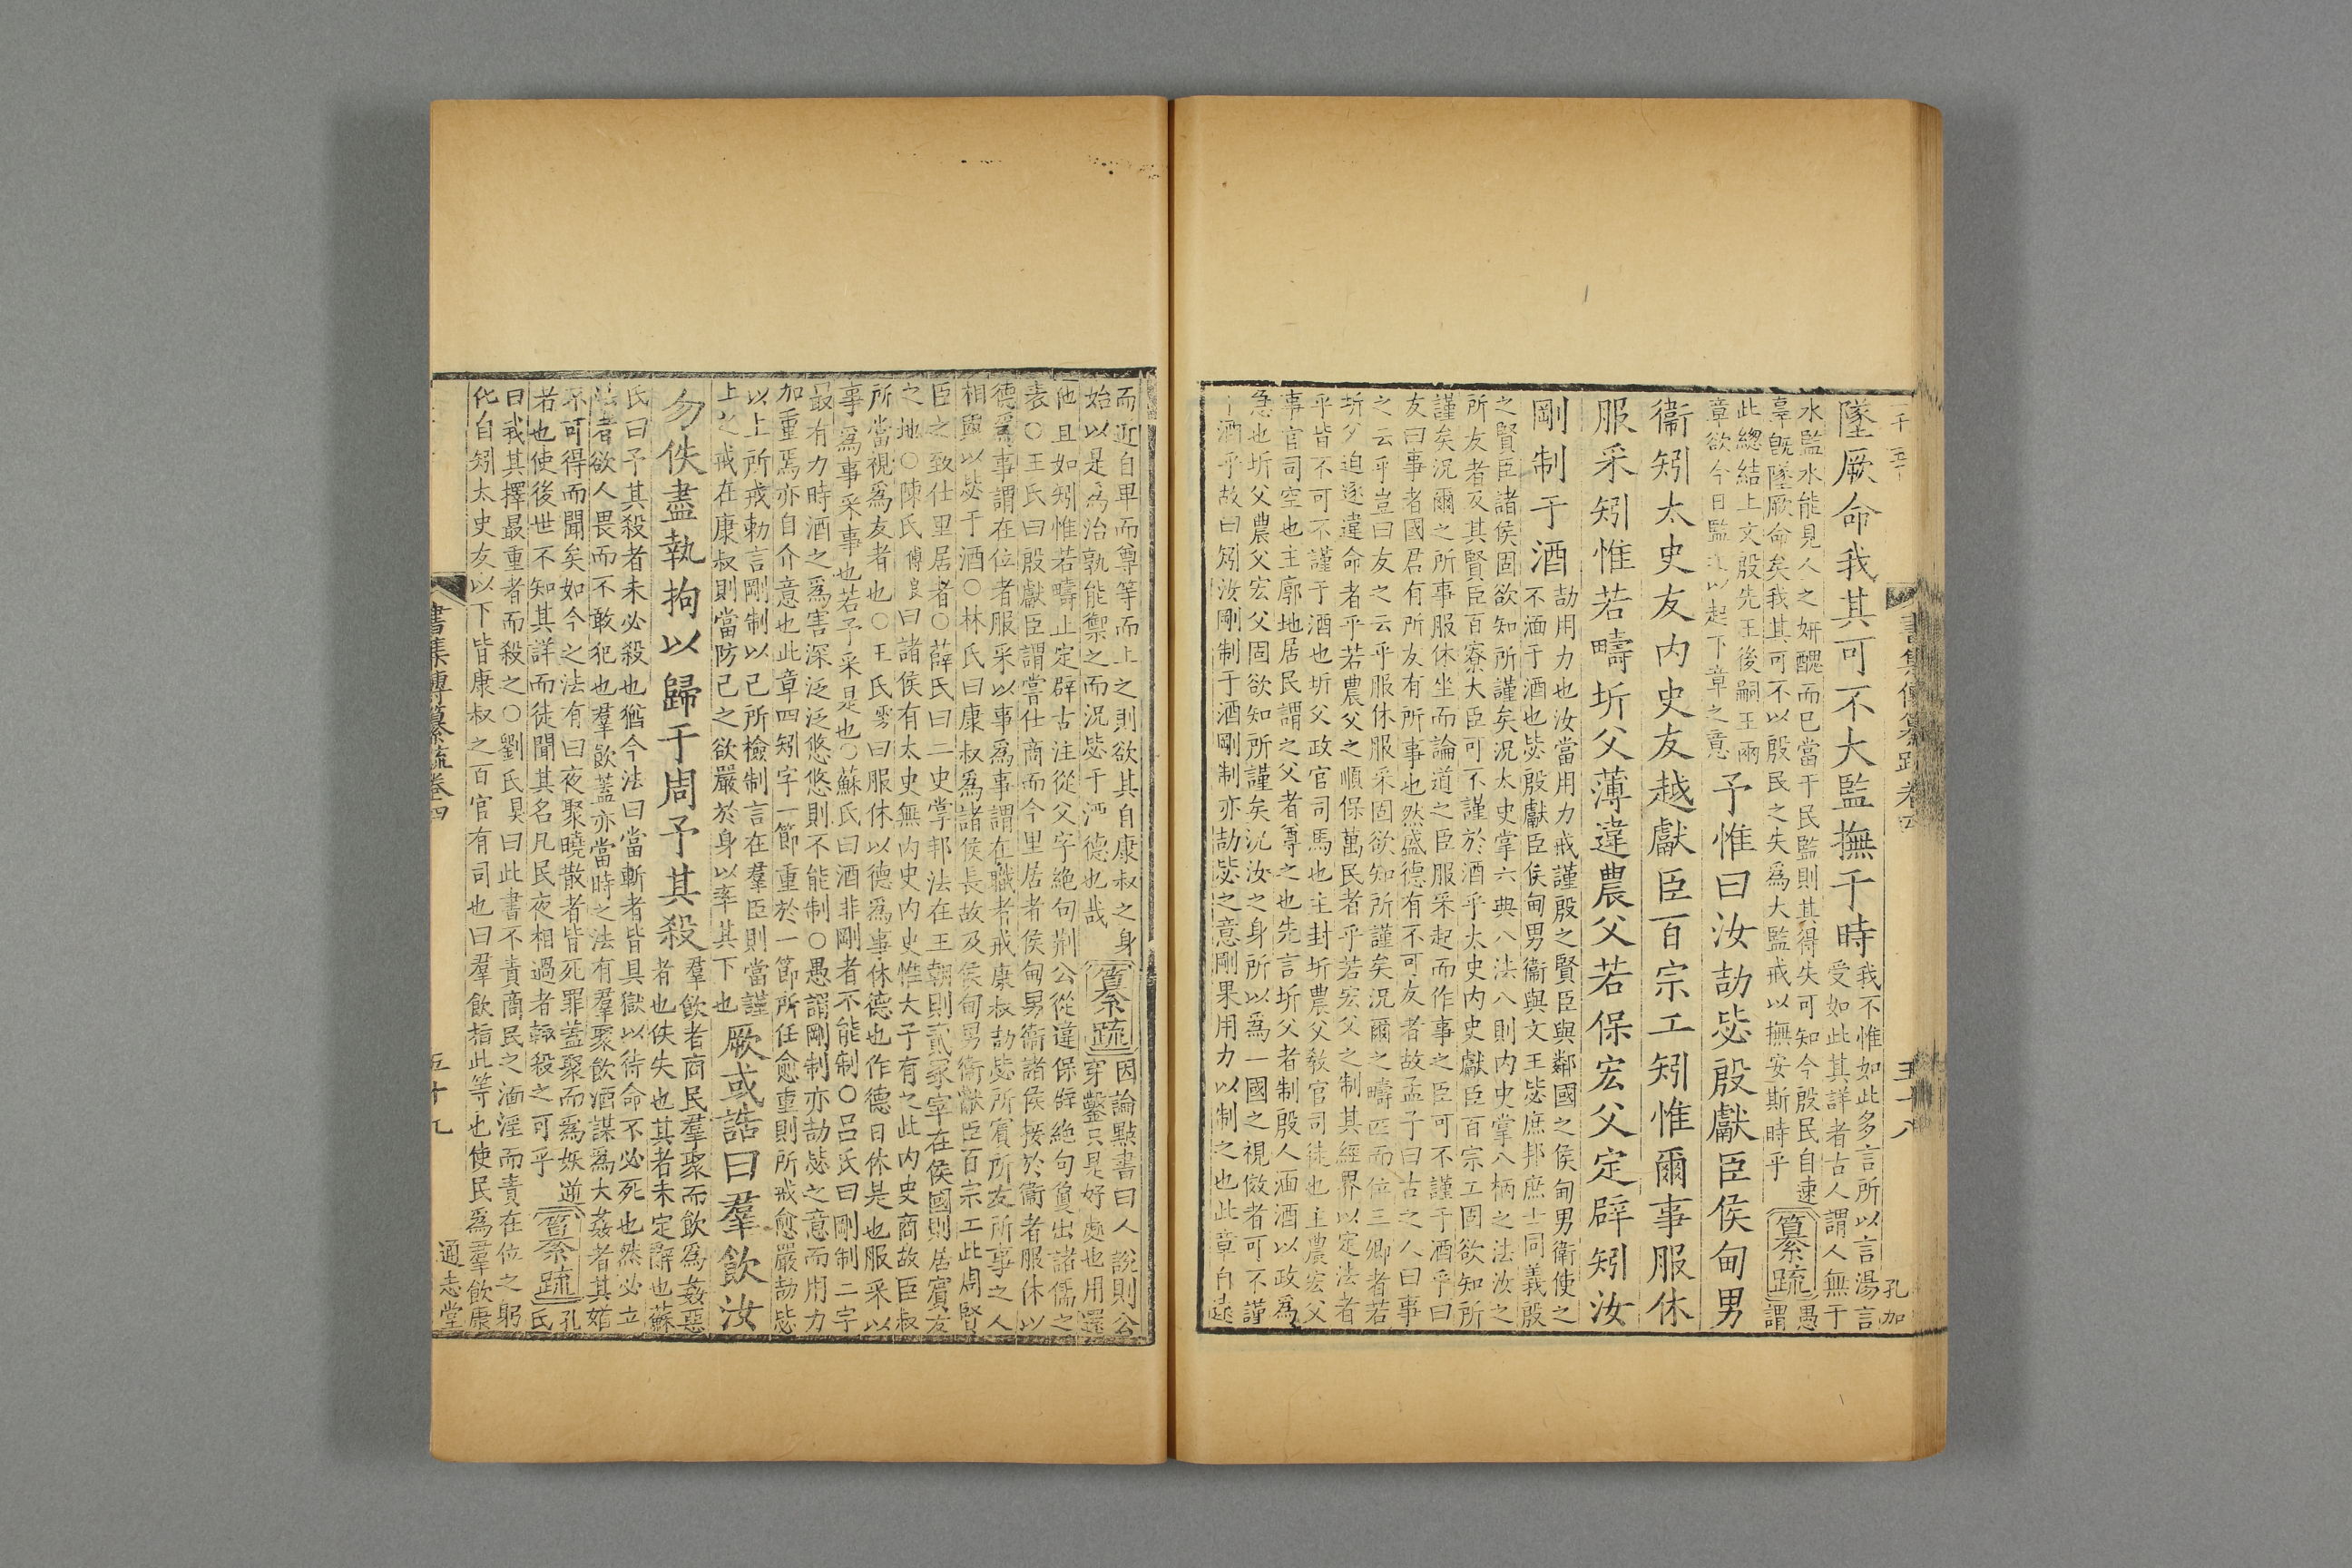 書集傳纂疏卷四
五十八
墜厥命我其可不大監撫于時
我不惟如此多言所以言湯言
受如此其詳者古人謂人無于
水監水能見人之妍醜而已當于民監則其得失可知今殷民自速
辜旣墜厥命矣我其可不以殷民之失爲大監戒以撫安斯時乎
纂疏
愚
謂
此總結上文殷先王後嗣王兩
章欲今日監之以起下章之意
予惟曰汝劼毖殷獻臣侯甸男
衞矧太史友內史友越獻臣百宗工矧惟爾事服休
服采矧惟若疇圻父薄違農父若保宏父定辟矧汝
剛制于酒
劼用力也汝當用力戒謹殷之賢臣與鄰國之侯甸男衞使之
不湎于酒也毖殷獻臣侯甸男衞與文王毖庶邦庶士同義殷
之賢臣諸侯固欲知所謹矣況太史掌六典八法八則內史掌八柄之法汝之
所友者及其賢臣百寮大臣可不謹於酒乎太史內史獻臣百宗工固欲知所
謹矣況爾之所事服休坐而論道之臣服采起而作事之臣可不謹于酒乎曰
友曰事者國君有所友有所事也然盛德有不可友者故孟子曰古之人曰事
之云乎豈曰友之云乎服休服采固欲知所謹矣況爾之疇匹而位三卿者若
圻父迫逐違命者乎若農父之順保萬民者乎若宏父之制其經界以定法者
乎皆不可不謹于酒也圻父政官司馬也主封圻農父敎官司徒也主農宏父
事官司空也主廓地居民謂之父者尊之也先言圻父者制殷人湎酒以政爲
急也圻父農父宏父固欲知所謹矣況汝之身所以爲一國之視傚者可不謹
于酒乎故曰矧汝剛制于酒剛制亦劼毖之意剛果用力以制之也此章自遠
而近自卑而尊等而上之則欲其自康叔之身
始以是爲治孰能禦之而況毖于酒德也哉
纂疏
因論點書曰人說則公
穿鑿只是好處也用還
他且如矧惟若疇止定辟古注從父字絶句荆公從違保辟絶句夐出諸儒之
表○王氏曰殷獻臣謂嘗仕商而今里居者侯甸男衞諸侯接於衞者服休以
德爲事謂在位者服采以事爲事謂在職者戒康叔劼毖所賓所友所事之人
相與以毖于酒○林氏曰康叔爲諸侯長故及侯甸男衞獻臣百宗工此周賢
臣之致仕里居者○薛氏曰二史掌邦法在王朝則貳冢宰在侯國則居賓友
之地○陳氏傅良曰諸侯有太史無內史內史惟天子有之此內史商故臣叔
所當視爲友者也○王氏雱曰服休以德爲事休德也作德日休是也服采以
事爲事采事也若予采是也○蘇氏曰酒非剛者不能制○呂氏曰剛制二字
最有力時酒之爲害深泛泛悠悠則不能制○愚謂剛制亦劼毖之意而用力
加重焉亦自介意也此章四矧字一節重於一節所任愈重則所戒愈嚴劼毖
以上所戒勑言剛制以己所檢制言在羣臣則當謹
上之戒在康叔則當防己之欲嚴於身以率其下也
厥或誥曰羣飮汝
勿佚盡執拘以歸于周予其殺
羣飮者商民羣聚而飮爲姦惡
者也佚失也其者未定辭也蘇
氏曰予其殺者未必殺也猶今法曰當斬者皆具獄以待命不必死也然必立
法者欲人畏而不敢犯也羣飮蓋亦當時之法有羣聚飮酒謀爲大姦者其詳
不可得而聞矣如今之法有曰夜聚曉散者皆死罪蓋聚而爲妖逆
若也使後世不知其詳而徒聞其名凡民夜相過者輒殺之可乎
纂疏
孔
氏
曰我其擇最重者而殺之○劉氏曰此書不責商民之湎淫而責在位之躬
化自矧太史友以下皆康叔之百官有司也曰羣飮指此等也使民爲羣飮康
書集傳纂疏卷四
五十九
通志堂